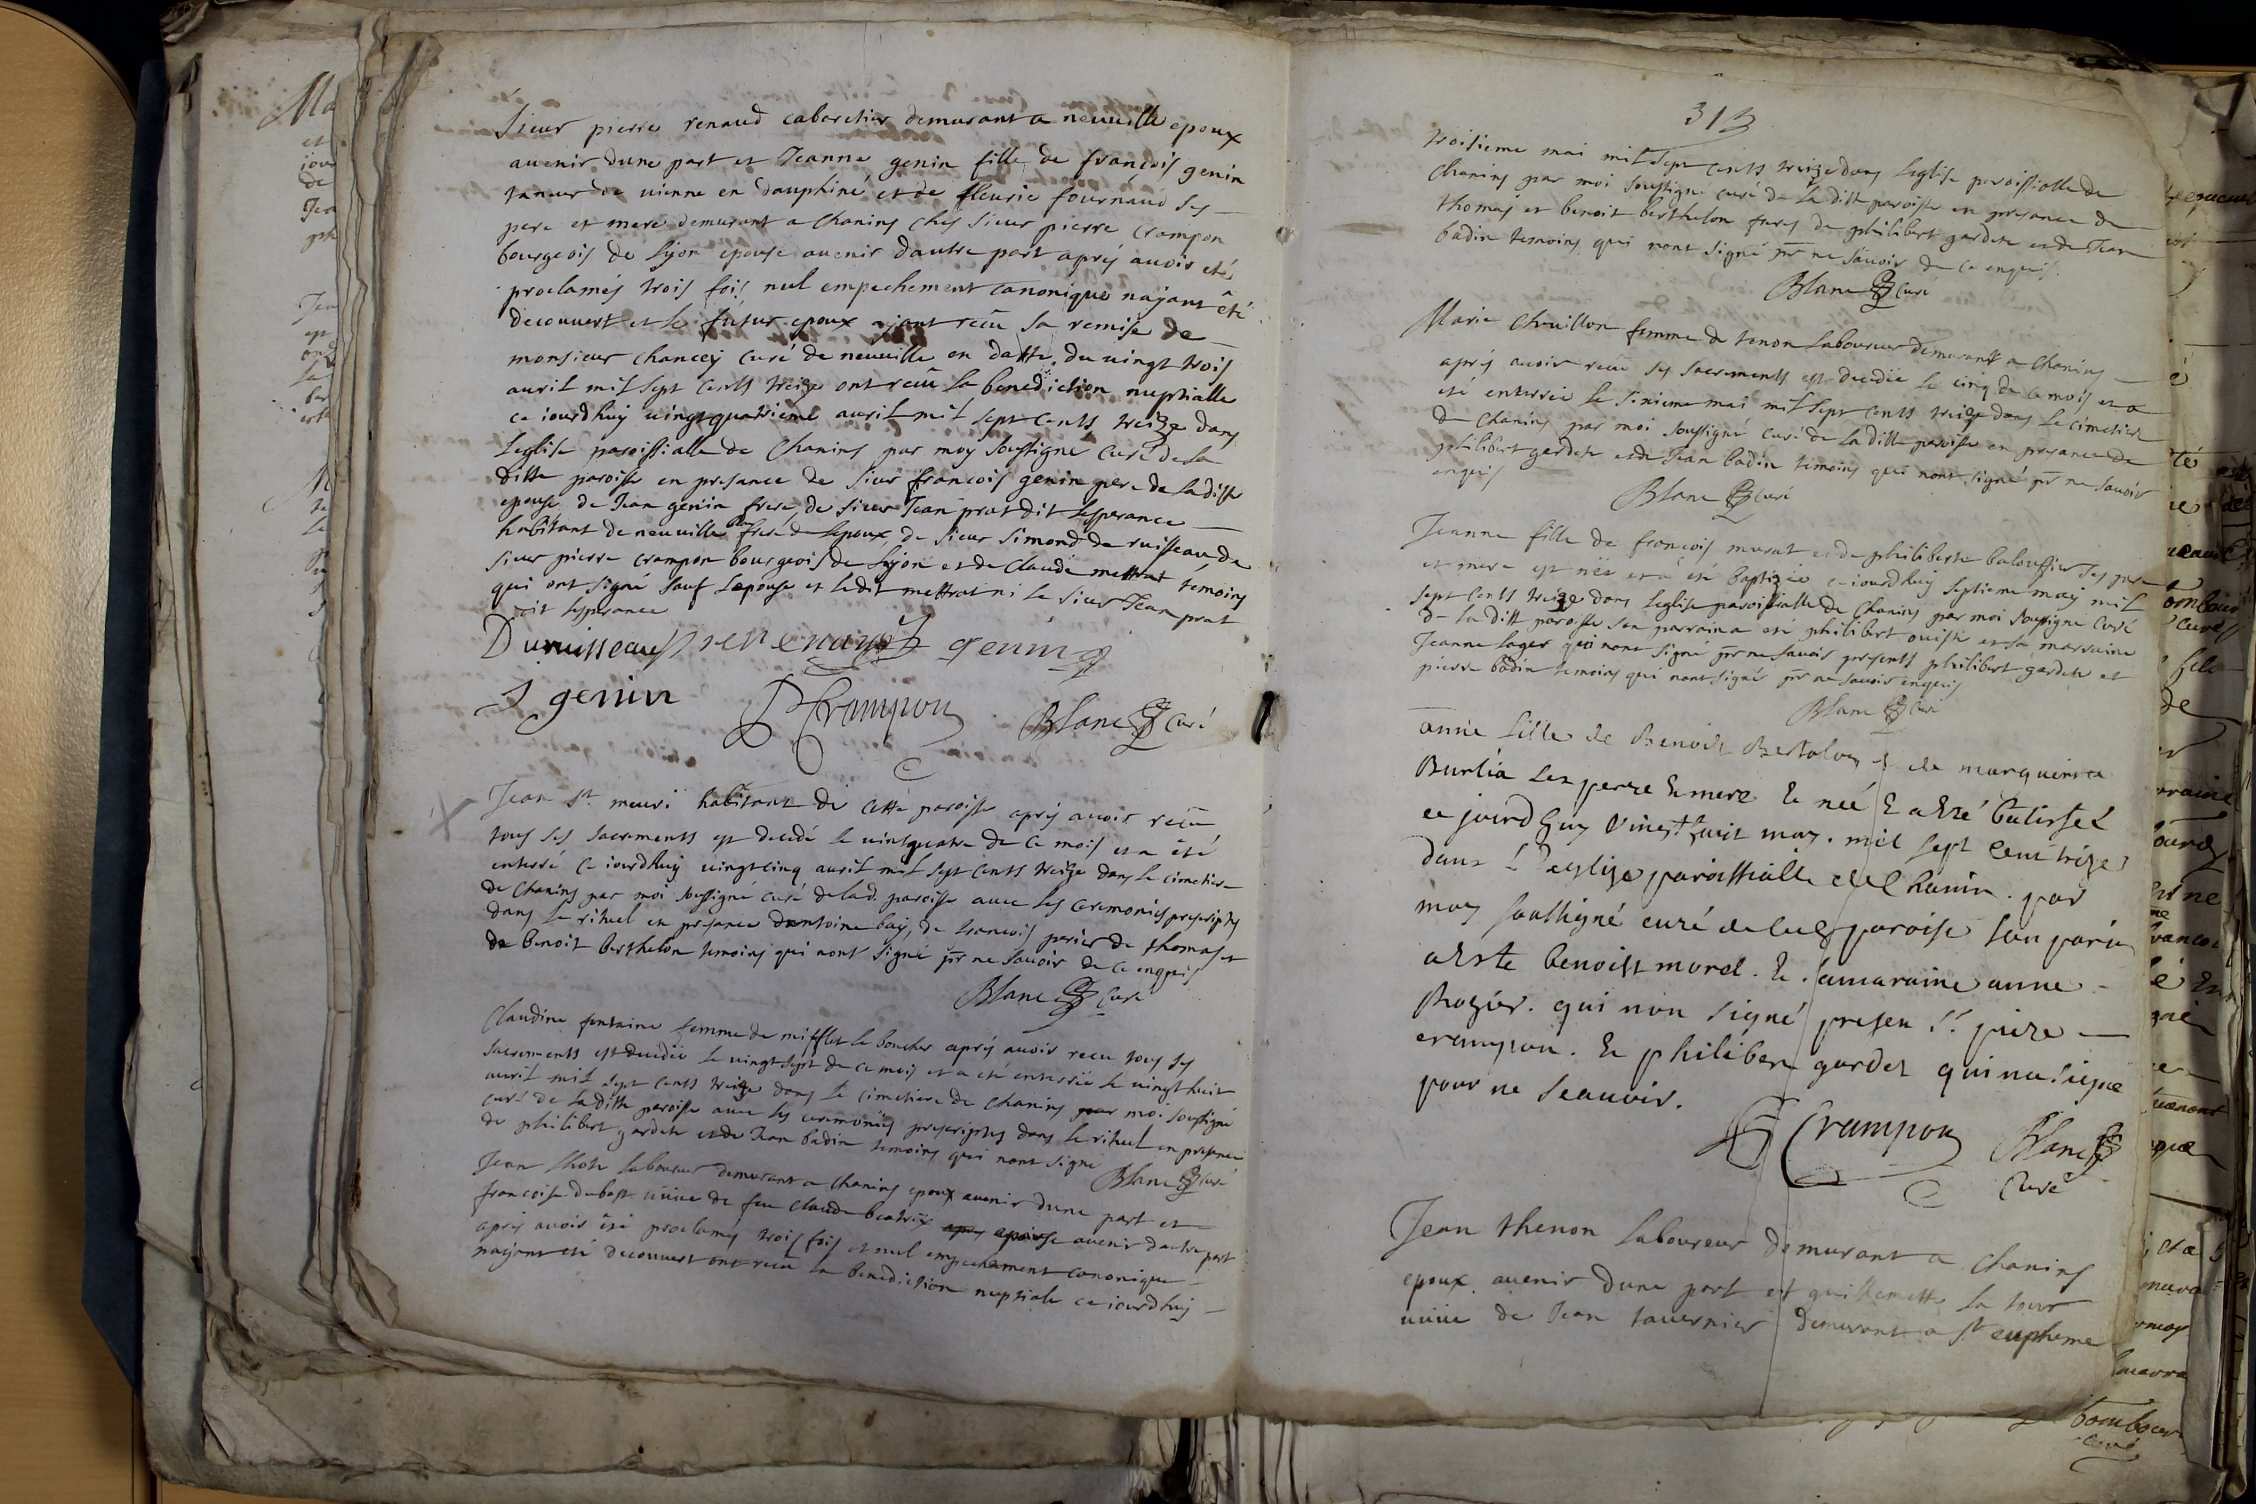 Sieur pierre renaud cabaretier demurant a neuuille epoux
auenir dune part et Jeanne genin fille de francois genin
taneur de uienne en dauphiné et de fleurie fournaud ses
pere et mere demurant a Chanins ches sieur pierre Crampon
bourgeois de Lyon epouse auenir dautre part aprés auoir eté
proclamés trois fois nul empechement canonique najant été
decouuert et le futur epoux ajant recu sa remise de
monsieur Chancey Curé de neuuille en datte du uingt trois
auril mil sept cents treize ont recu la benediction nuptialle
ce iourdhuy uingtquatrieme auril mil sept cents treize dans
Leglise paroissialle de Chanins par moy soussigné Curé de la
ditte paroisse en presance de sieur francois genin pere de laditte
epouse de Jean genin frere, de sieur Jean prat dit Lesperance
habitant de neuuille frere de lepoux de sieur simond de ruisseau de
sieur pierre crampon bourgeois de Lyon et de Claude mettrat témoins
qui ont signé sauf Lepouse et ledit mettrat ni le sieur Jean prat
dit lesperance
Duruisseau genin
genin Crampon Blanc Curé
Jean st meuri habitant de cette paroisse aprés auoir recu
tous ses sacrements est decedé le uintquatre de ce mois et a été
enterré ce iourdhuy uingtcinq auril mil sept cents treize dans le cimetiere
de Chanins par moi soussigné curé de lad. paroisse auec les ceremonies prescriptes
dans le rituel en presance dantoine bay, de francois perier de thomas et
de benoit berthelon temoins qui nont signé pr ne sauoir de ce enquis
Blanc Curé
Claudine fontaine femme de mifflet le boucher aprés auoir recu tous ses
sacrements est decedée le uingtsept de ce mois et a eté enterrée le uingt huit
auril mil sept cents treize dans le cimetiere de Chanins par moi soussigné
curé de la ditte paroisse auec les ceremonies prescriptes dans le rituel en presence
de philibert gardete et de Jean badin temoins qui nont signé
Blanc Curé
Jean laboureur demurant a Chanins epoux auenir dune part et
francoise dubost uuiue de feu Claude beatrix epouse auenir dautre part
aprés auoir été proclamés trois fois et nul empechement canonique
najant eté decouuert ont recu la benediction nuptiale ce iourdhuy
313
troisieme mai mil sept cents treize dans Leglise paroissialle de
Chanins par moi soussigné curé de la ditte paroisse en presance de
thomas et benoit berthelon freres de philibert gardete et de Jean
badin temoins qui nont signé pr ne sauoir de ce enquis.
Blanc Curé
Marie Chuillon femme de tenon laboureur demurant a Chanins
aprés auoir recu ses sacrements est decedée le cinq de ce mois et a
eté enterrée le sixieme mai mil sept cents treize dans le cimetiere
de Chanins par moi soussigné curé de la ditte paroisse en presance de
philibert gardete et de Jean badin temoins qui nont signé pr ne sauoir
enquis
Blanc Curé
Jeanne fille de francois murat et de philiberte baloussier ses pere
et mere est née et a été baptizée ce iourdhuy septieme may mil
sept cents treize dans leglise paroissialle de Chanins par moi soussigné Curé
de la ditt paroisse son parrain a eté philibert ouiste et sa marraine
Jeanne lager qui nont signé pr ne sauoir presents philibert gardete et
pierre badin temoins qui nont signés pr ne sauoir enquis
Blanc Curé
anne fille de Benoist Bertolon & de marguerite
Burlia ses perre & mere & neé & a esté batissée
ce jourdhuy vingt huit may. mil sept cent trize
dans l'eglize paroissialle de Chanin. par
moy soussigné curé de lad paroise son parin
a este benoist morel. & sa maraine anne
Rozier. qui non signé presen sr. piere
crampon. & philiber gardet qui na signé
pour ne seauoir.
Crampon Blanc
Curé
Jean thenon laboureur demurant a Chanins
epoux auenir dune part et guillemette la tour
uuiue de Jean tauernier demurant a st eupheme